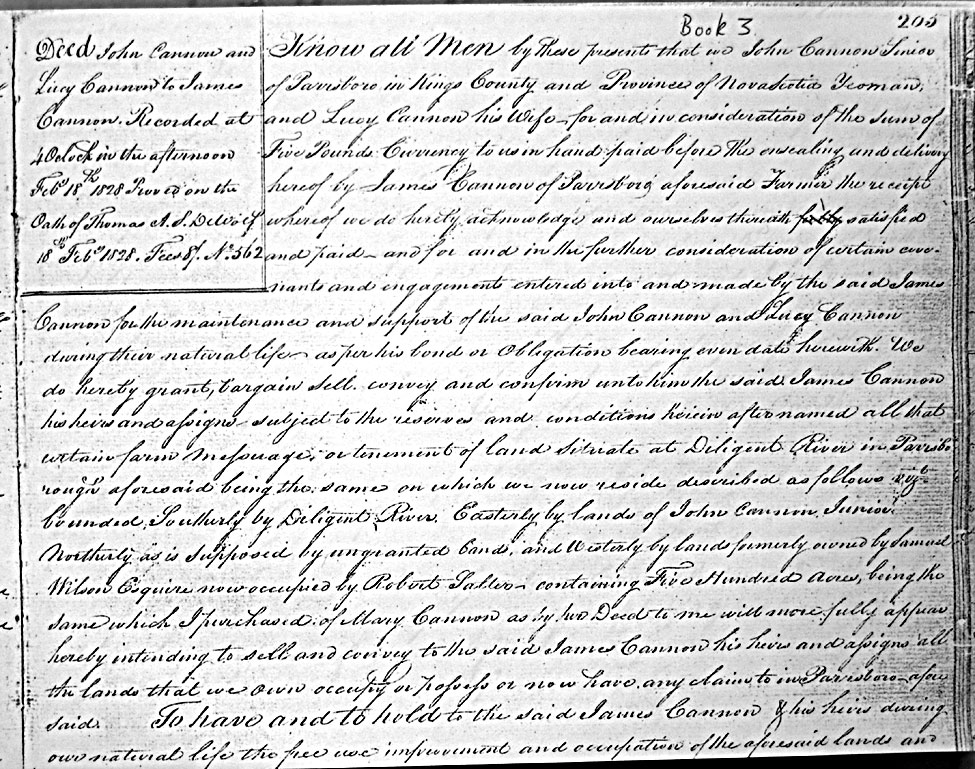 Book 3
205
Deed John Cannon and
Lucy Cannon to James
Cannon. Recorded at
4 Oclock in the afternoon
Feby 18th 1828 Proved on the
Oath of Thomas A. S. DeWolf
18th Feby 1828. Fees 8/. No. 562
Know all Men by these presents that we John Cannon Senior
of Parrsboro in Kings County and Province of Novascotia Yeoman,
and Lucy Cannon his Wife for and in consideration of the sum of
Five Pounds Currency to us in hand paid before the ensealing and delivery
hereof by James Cannon of Parrsboro aforesaid Farmer the receipt
whereof we do hereby acknowledge and ourselves therewith fully satisfied
and paid and for and in the further consideration of certain cove-
nants and engagements entered into and made by the said James
Cannon for the maintenance and support of the said John Cannon and Lucy Cannon
during their natural life as per his bond or Obligation bearing even date herewith. We
do hereby grant, bargain sell. convey and confirm unto him the said James Cannon
his heirs and assigns subject to the reserves and conditions herein after named all that
certain farm Messuage, or tenement of land situate at Diligent River in Parrsbo
rough aforesaid being the same on which we now reside described as follows vizt
bounded, Southerly by Diligent River, Easterly by lands of John Cannon Junior
Northerly as is supposed by ungranted Lands, and Westerly by lands formerly owned by Samuel
Wilson Esquire now occupied by Robert Salter containing Five Hundred Acres, being the
same which I purchased of Mary Cannon as by two Deed to me will more fully appear
hereby intending to sell and convey to the said James Cannon his heirs and assigns all
the lands that we own occupy or possess or now have any claim to in Parrsboro afore
said. To have and to hold to the said James Cannon & his heirs during
our natural life the free use improvement and occupation of the aforesaid lands and